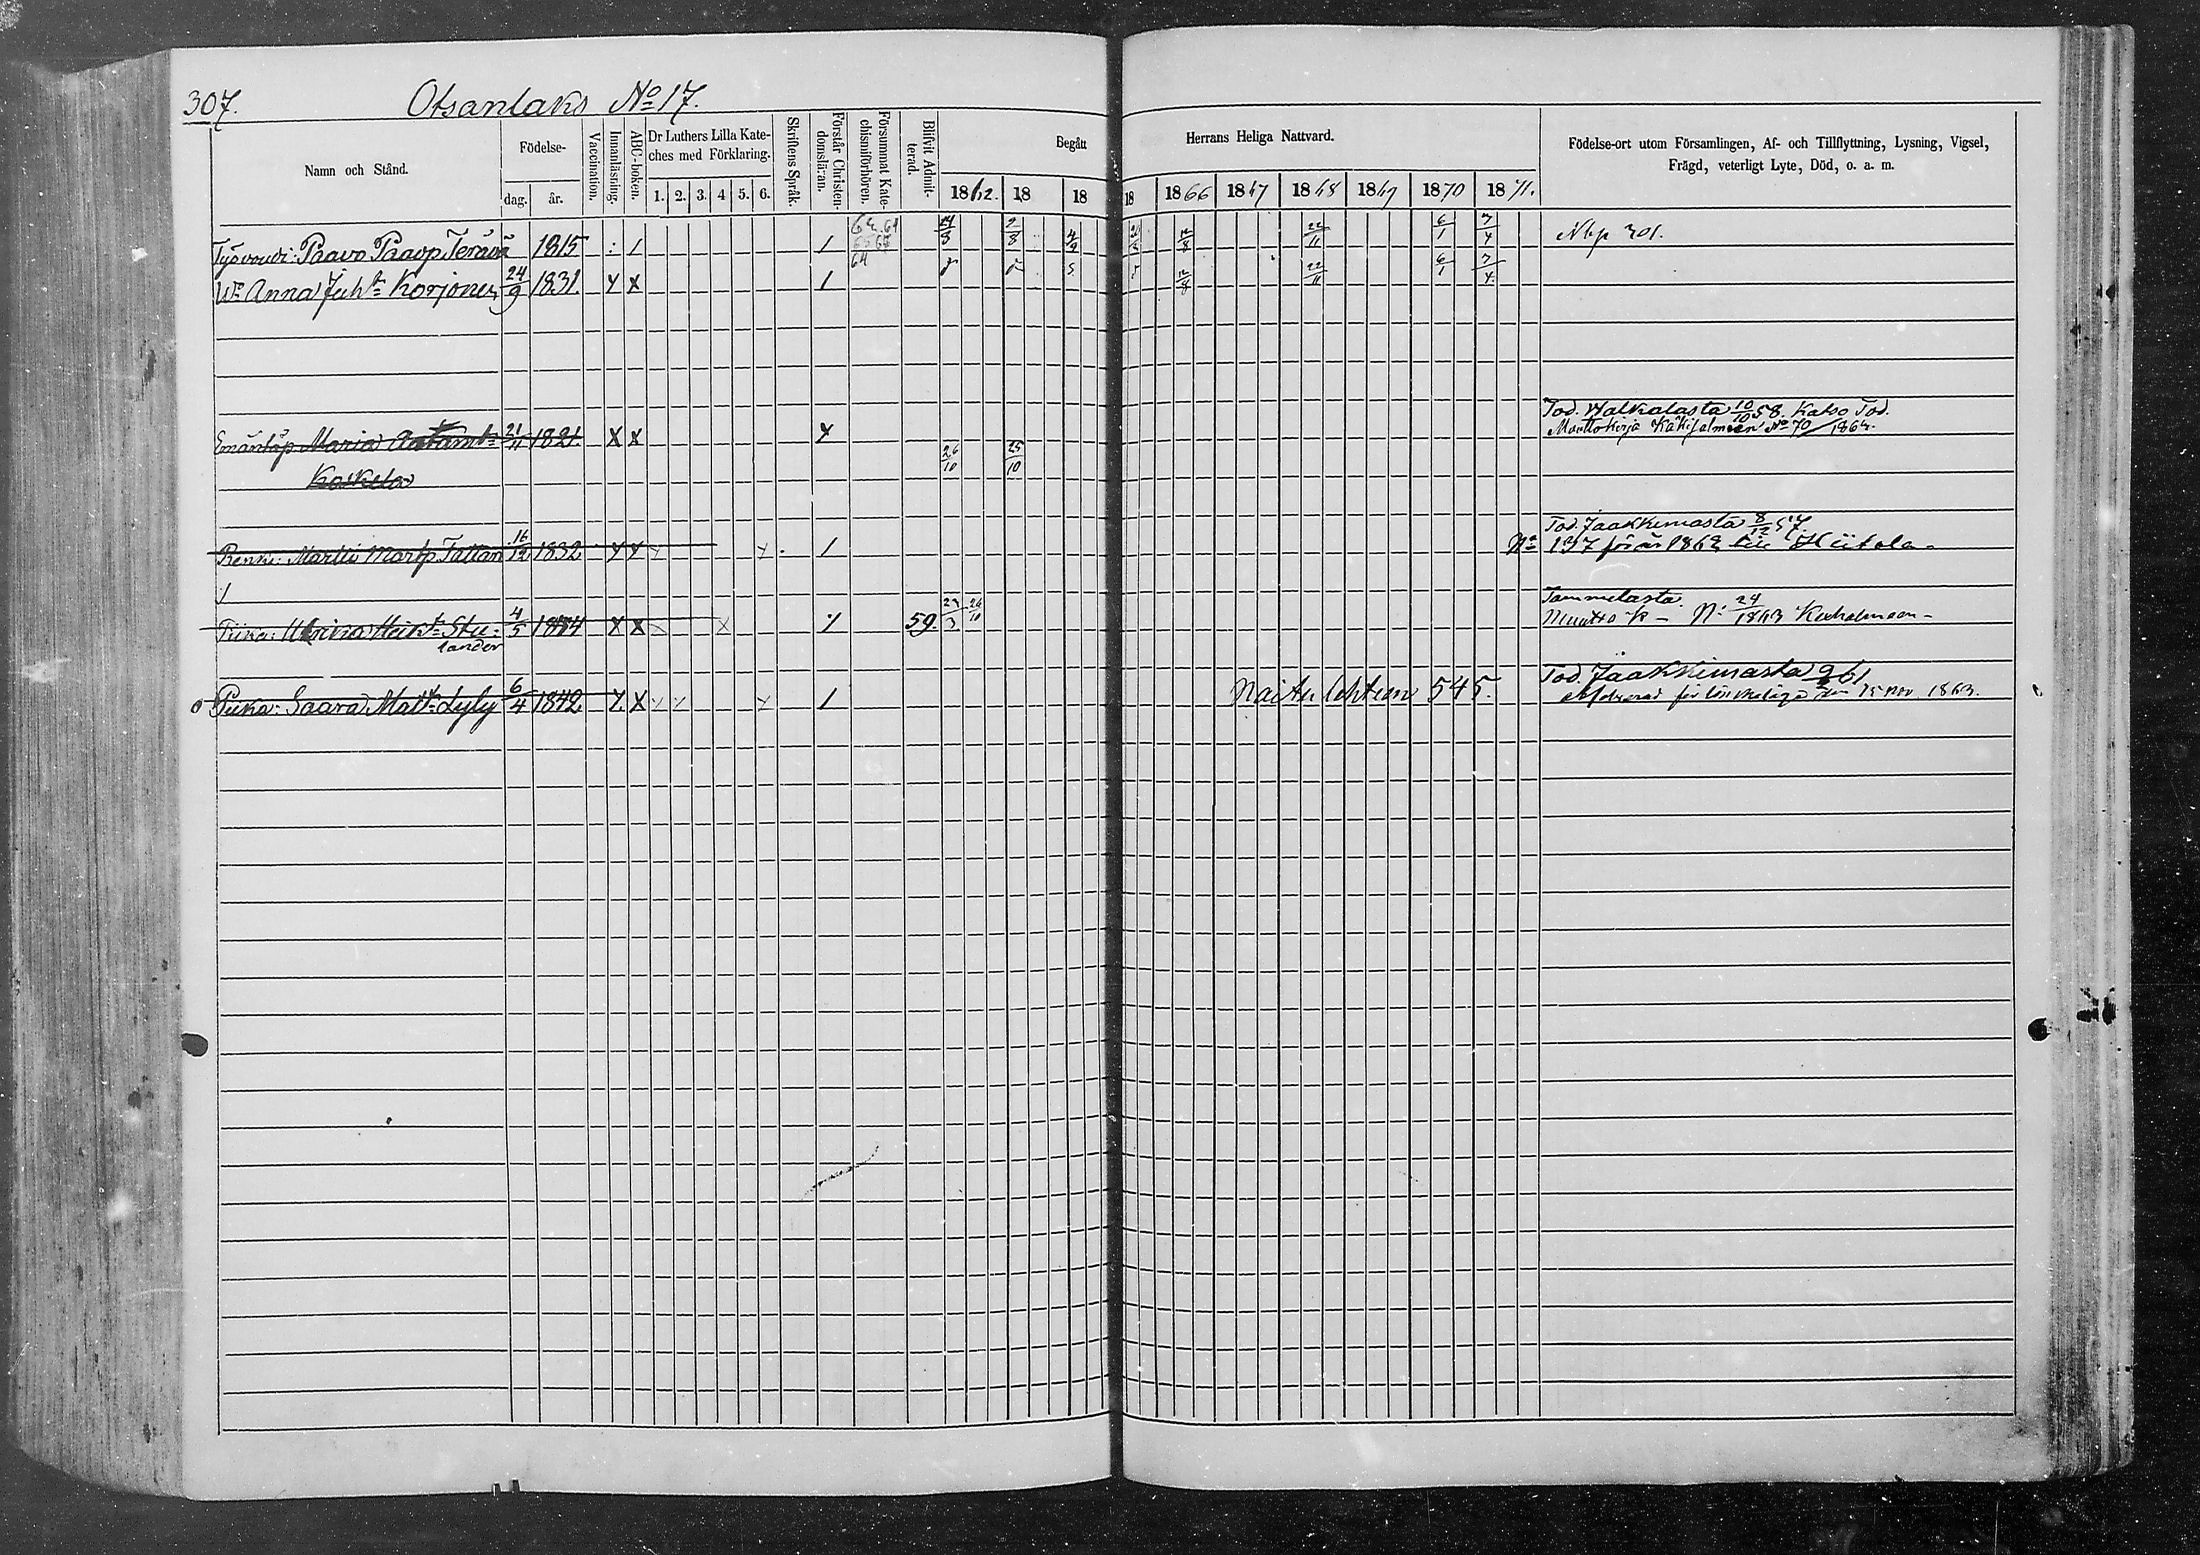 307.
Otsanlaks No 17.
Namn och Stånd.
Födelse-
dag.
år.
Vaccination.
Innanläsning.
ABC-boken.
Dr Luthers Lilla Kate-
ches med Förklaring.
1. 2. 3. 4 5. 6.
Skriftens Språk.
Förstår Christen-
domsläran.
Försummat Kate-
chismiförhören.
Blifvit Admit-
terad.
Begått
Herrans Heliga Nattvard.
1862. 18 18 18 1866 1867 1868 1869 1870 1871.
Födelse-ort utom Församlingen, Af- och Tillflyttning, Lysning, Vigsel,
Frägd, veterligt Lyte, Död, o. a. m.
Työvouti: Paavo Paavp. Terävä 1815 : 1 1 2/8 4/9 12/8 22/11 6/1 7/4
Wo Anna Juhtr Korjonen 24/9 1831. Y X 1 64 12/8 22/11 6/1 7/4
Maria 21/11 1821. X X X 26/10 25/10 Tod. Walkalasta 10/10 58. Katso Tod.
Muuttokirja No 70/1864.
Koskela
Renki: Martti Martp Tattari 16/12 1832 Y X 1 Tod. Jaakkimasta 8/12 57.
No 137 för år 1862 till Hiitola.
Piika: Heiktr Stu-
lander 4/5 1844 X X 59. 26/10 Tammelasta
Muutto K - No 24/1863 Kexholmeen -
Piika: Saara Mattr Lyly 6/4 1842 Y. X 1 Naitu lehteen 545. Tod. Jaakkimasta 61
för den 15 Nov 1863.